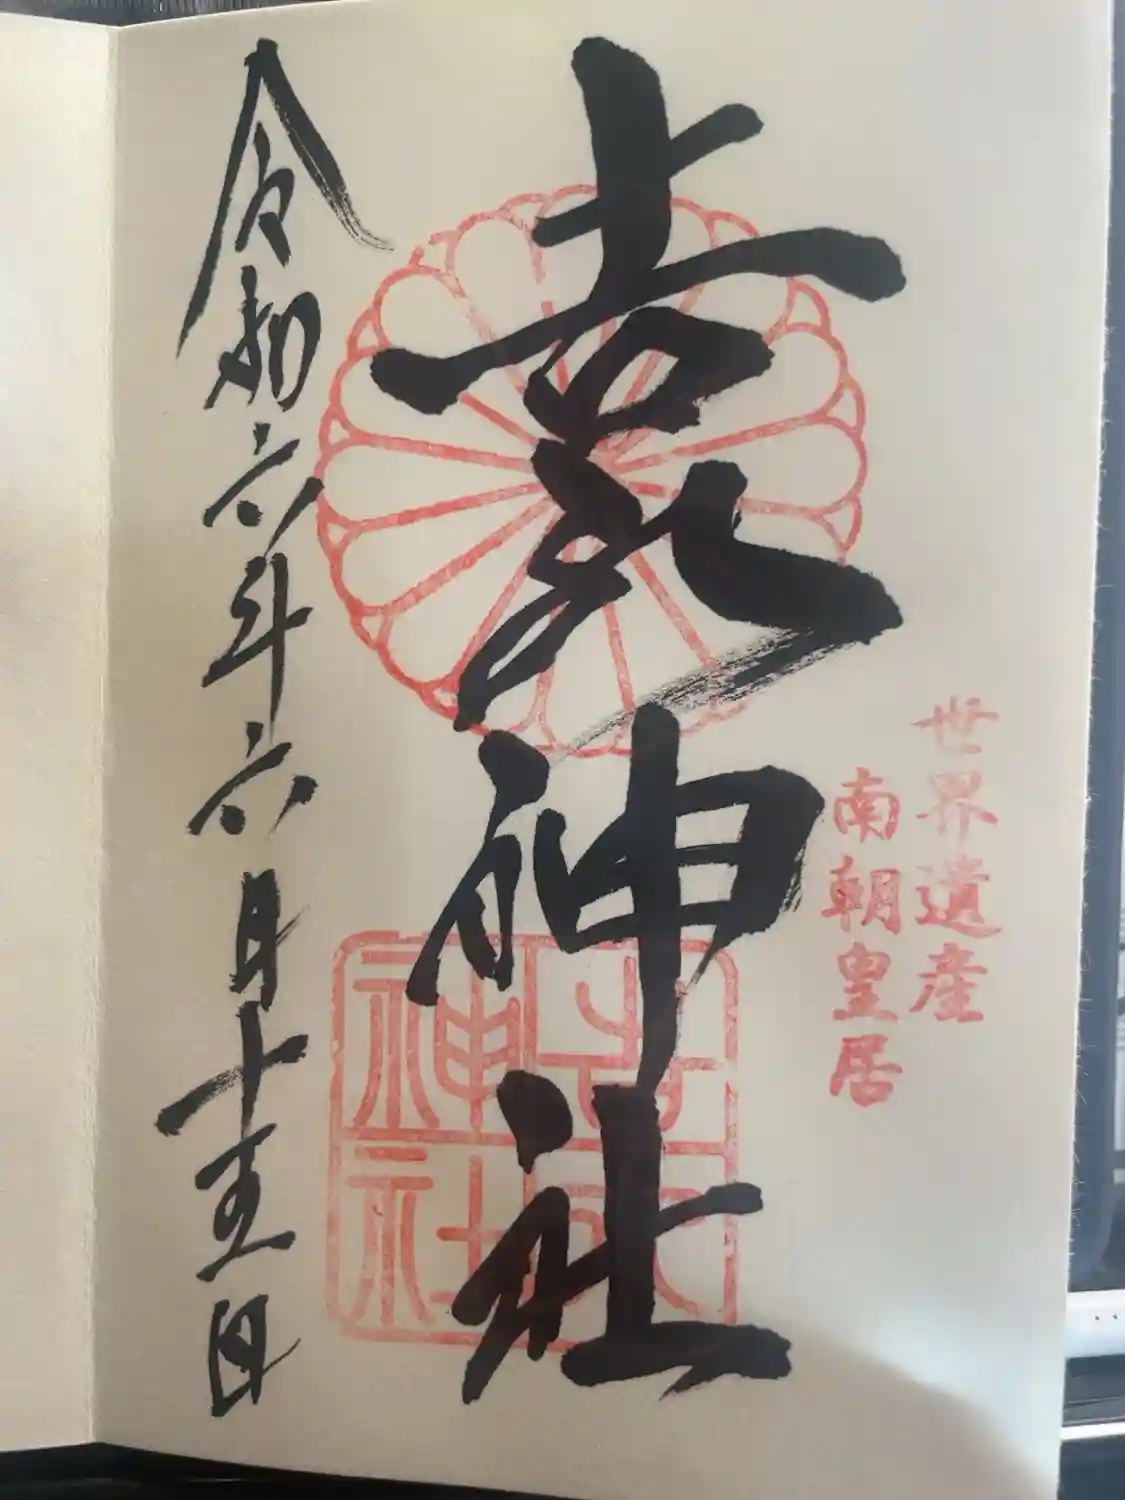 世界遺産
南朝皇居
吉水神社
吉水
神社
令和六年六月十五日